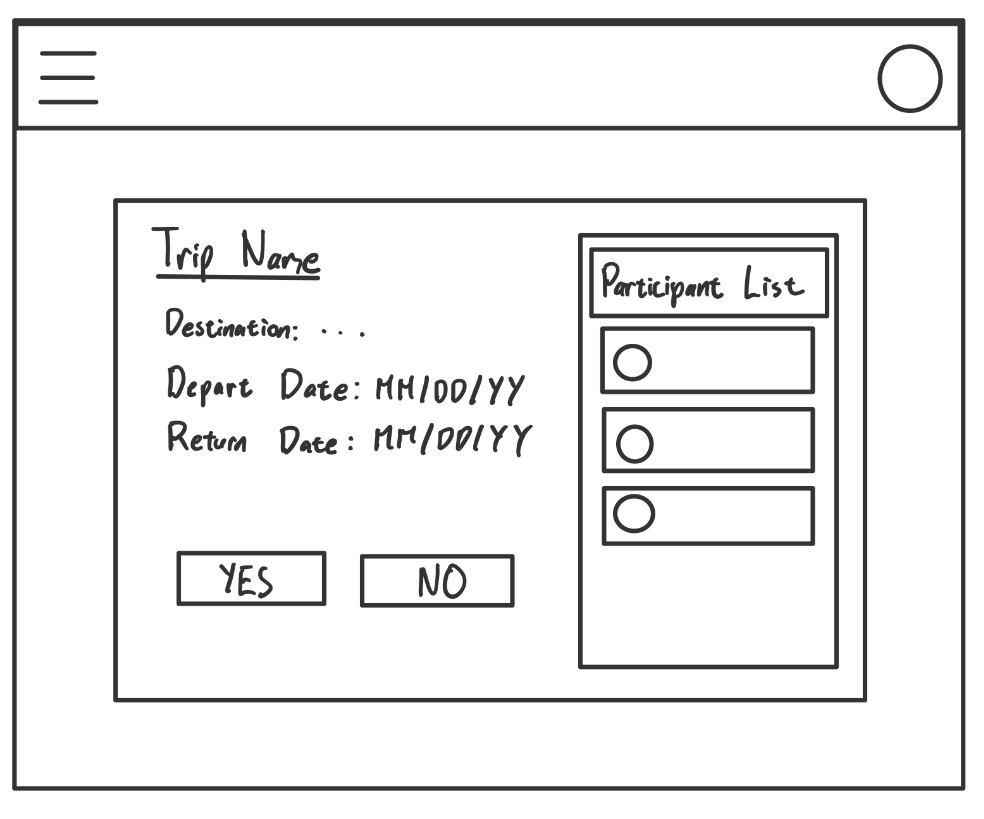 Trip Name
Destination: ...
Depart Date: MM/DD/YY
Return Date: MM/DD/YY
YES
NO
Participant List